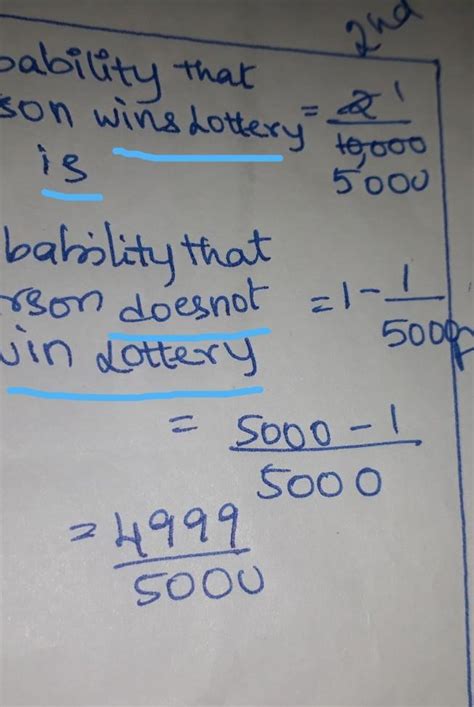 2nd
bability that
son wins Lottery = 2 1
10,000
is 5000
bability that
rson doesnot = 1 - 1
5000
in Lottery
= 5000 - 1
5000
= 4999
5000